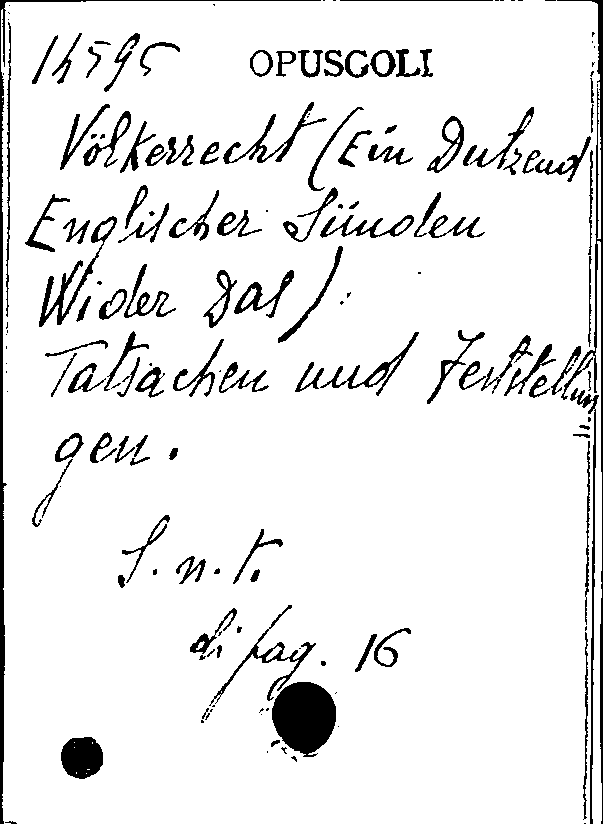 14595 OPUSCOLI
Völkerrecht (Ein Dutzend
Englischer Sünden
Wider Das).
Tatsachen und Feststellun
gen.
S. n. t.
di pag. 16